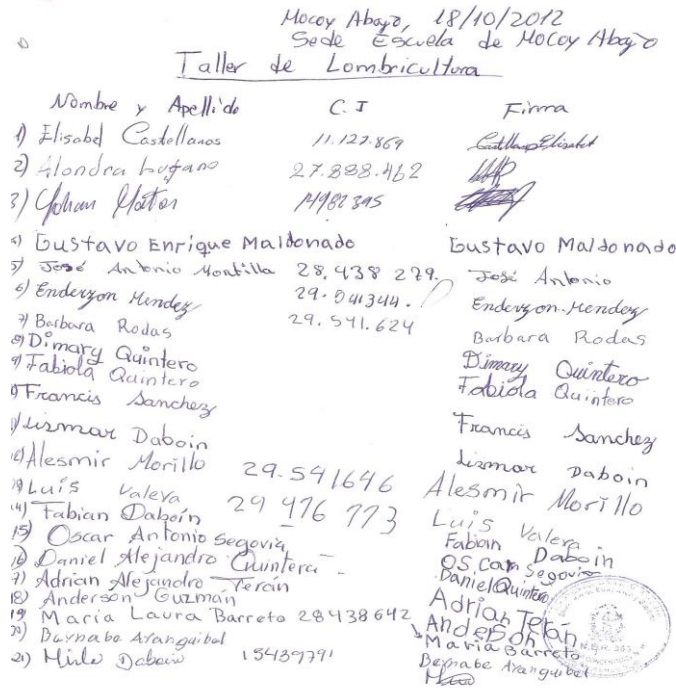 Mocoy Abajo, 18/10/2012
Sede Escuela de Mocoy Abajo
Taller de Lombricultura
Nombre y Apellido C.I Firma
1) Elisabel Castellanos 11.127.869
2) Alondra Lugano 27.888.462
3) Yohan Matos 14982395
4) Gustavo Enrique Maldonado Gustavo Maldonado
5) José Antonio Montilla 28.438 279. José Antonio
6) Enderzon Mendez 29.041344. Enderzon Mendez
7) Barbara Rodas 29.541.624 Barbara Rodas
8) Dimary Quintero Dimary Quintero
9) Fabiola Quintero Fabiola Quintero
Francis Sanchez Francis Sanchez
Lismar Daboin Lismar Daboin
12) Alesmir Morillo 29-541646 Alesmir Morillo
Luis Valera 29 476 773 Luis Valera
14) Fabian Daboín Fabian Daboin
15) Oscar Antonio Segovia OS.car Segovia
16) Daniel Alejandro Quintero Daniel Quintero
17) Adrian Alejandro Terán Adrian Terán
18) Anderson Guzmán Anderson
19 María Laura Barreto 28438642 Maria Barreto
20) Bernabe Aranguibel Bernabe Aranguibel
21) Daboin 15439791